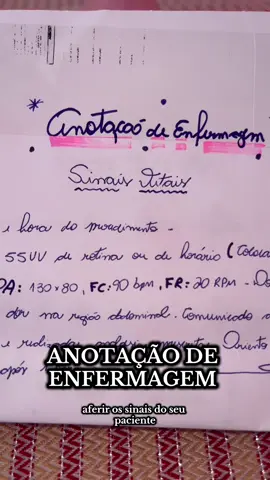 * Anotação de Enfermagem
Sinais Vitais
e hora do procedimento -
SSVV de rotina ou de horário (
PA: 130x80, FC: 90 bpm, FR: 20 RPM -
dor na região abdominal. Comunicado
e
após
ANOTAÇÃO DE
ENFERMAGEM
aferir os sinais do seu
paciente